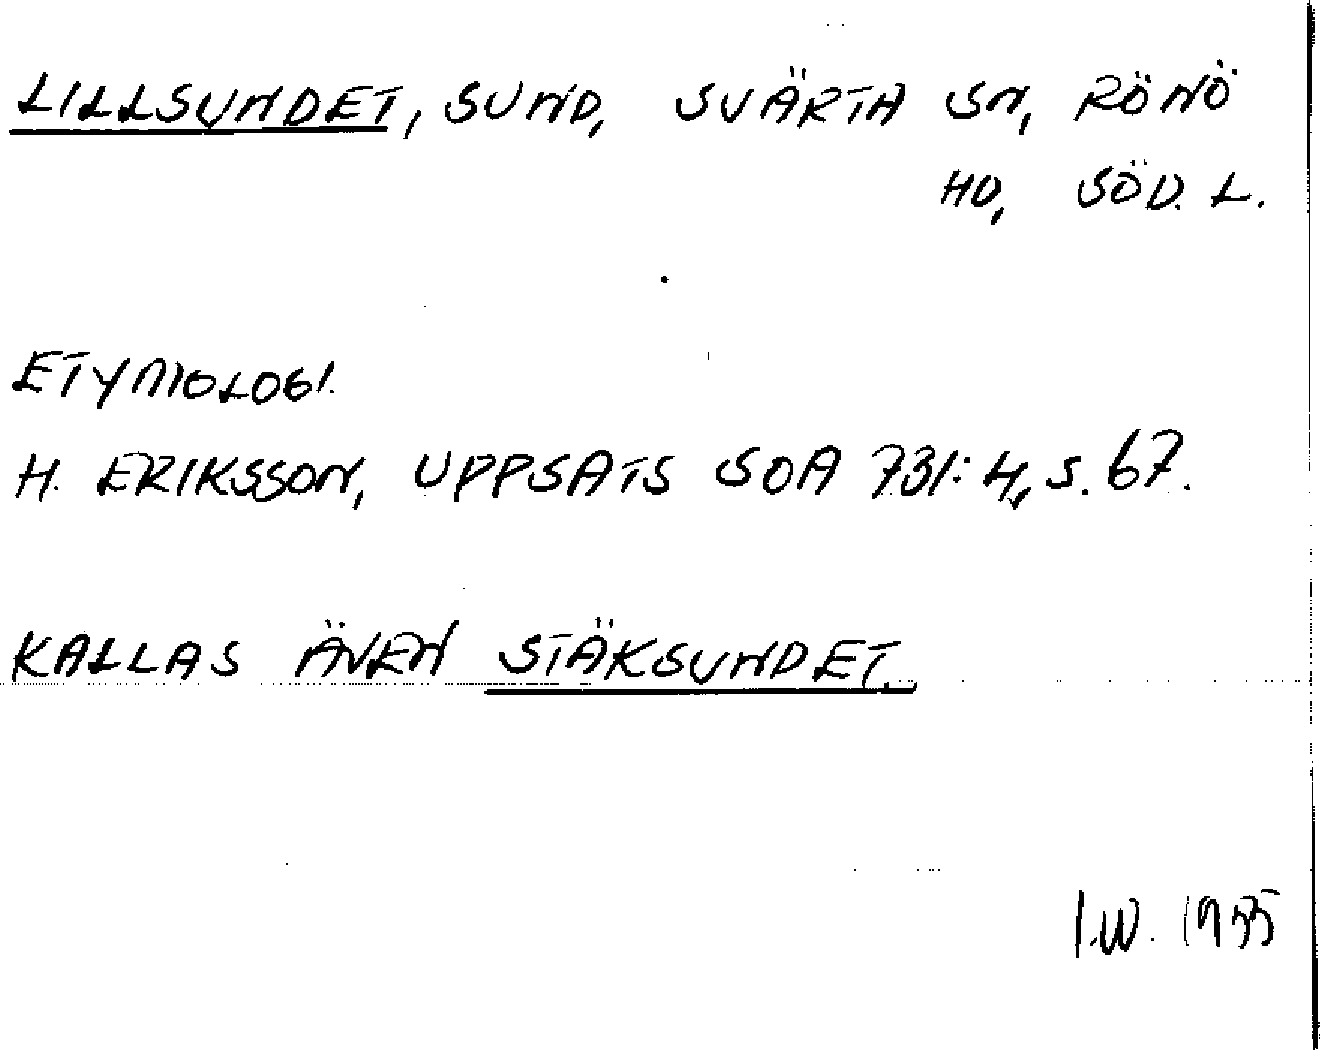 LILLSUNDET, SUND, SVÄRTA SN, RÖNÖ
HD, SÖD. L.
ETYMOLOGI.
H. ERIKSSON, UPPSATS SOA 731:4, S. 67.
KALLAS ÄVEN STÄKSUNDET.
I.W. 1955